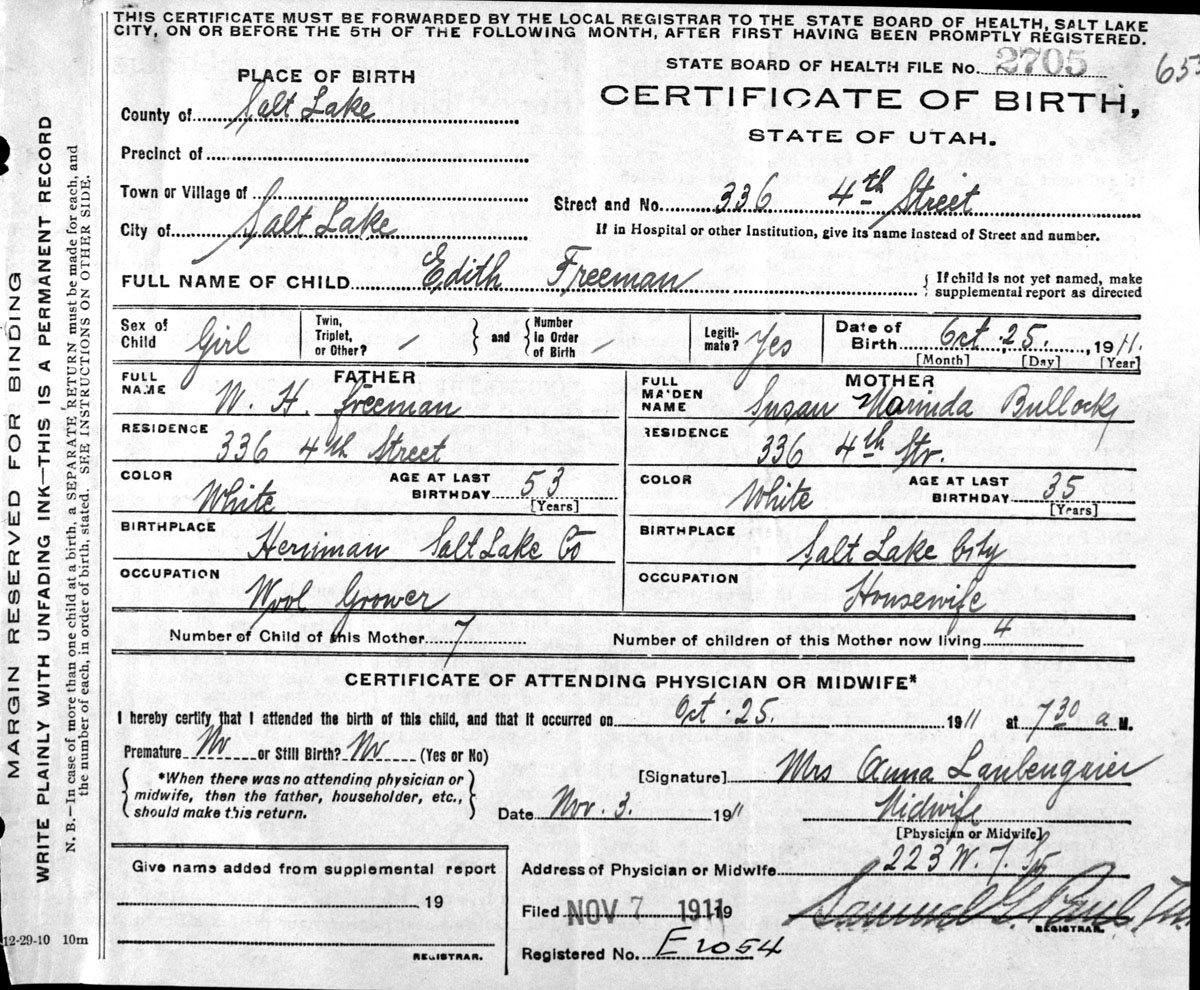 THIS CERTIFICATE MUST BE FORWARDED BY THE LOCAL REGISTRAR TO THE STATE BOARD OF HEALTH, SALT LAKE
CITY, ON OR BEFORE THE 5TH OF THE FOLLOWING MONTH, AFTER FIRST HAVING BEEN PROMPTLY REGISTERED.
STATE BOARD OF HEALTH FILE No. 2705
653
CERTIFICATE OF BIRTH,
STATE OF UTAH.
PLACE OF BIRTH
County of Salt Lake
Precinct of
Town or Village of
City of Salt Lake
Street and No. 336 4th Street
If in Hospital or other Institution, give its name instead of Street and number.
FULL NAME OF CHILD Edith Freeman
If child is not yet named, make
supplemental report as directed
Sex of Child Girl
Twin, Triplet, or Other? –
and Number in Order of Birth –
Legitimate? Yes
Date of Birth Oct. 25. 1911.
[Month] [Day] [Year]
FATHER
FULL NAME W. H. Freeman
RESIDENCE 336 4th Street
COLOR White
AGE AT LAST BIRTHDAY 53 [Years]
BIRTHPLACE Herriman Salt Lake Co
OCCUPATION Wool Grower
MOTHER
FULL MAIDEN NAME Susan Narinda Bullock
RESIDENCE 336 4th Str.
COLOR White
AGE AT LAST BIRTHDAY 35 [Years]
BIRTHPLACE Salt Lake City
OCCUPATION Housewife
Number of Child of this Mother 7
Number of children of this Mother now living 4
CERTIFICATE OF ATTENDING PHYSICIAN OR MIDWIFE*
I hereby certify that I attended the birth of this child, and that it occurred on Oct. 25. 1911 at 7 30 a M.
Premature No or Still Birth? No (Yes or No)
*When there was no attending physician or
midwife, then the father, householder, etc.,
should make this return.
[Signature] Mrs Anna Laubengaier
Date Nov. 3. 1911
Midwife
[Physician or Midwife]
Address of Physician or Midwife 223 W. 7.
Give name added from supplemental report
19
REGISTRAR.
Filed NOV 7 1911 19
Samuel G. Paul
REGISTRAR.
Registered No. E 1054
12-29-10 10m
MARGIN RESERVED FOR BINDING
WRITE PLAINLY WITH UNFADING INK—THIS IS A PERMANENT RECORD
N. B.—In case of more than one child at a birth, a SEPARATE RETURN must be made for each, and
the number of each, in order of birth, stated. SEE INSTRUCTIONS ON OTHER SIDE.